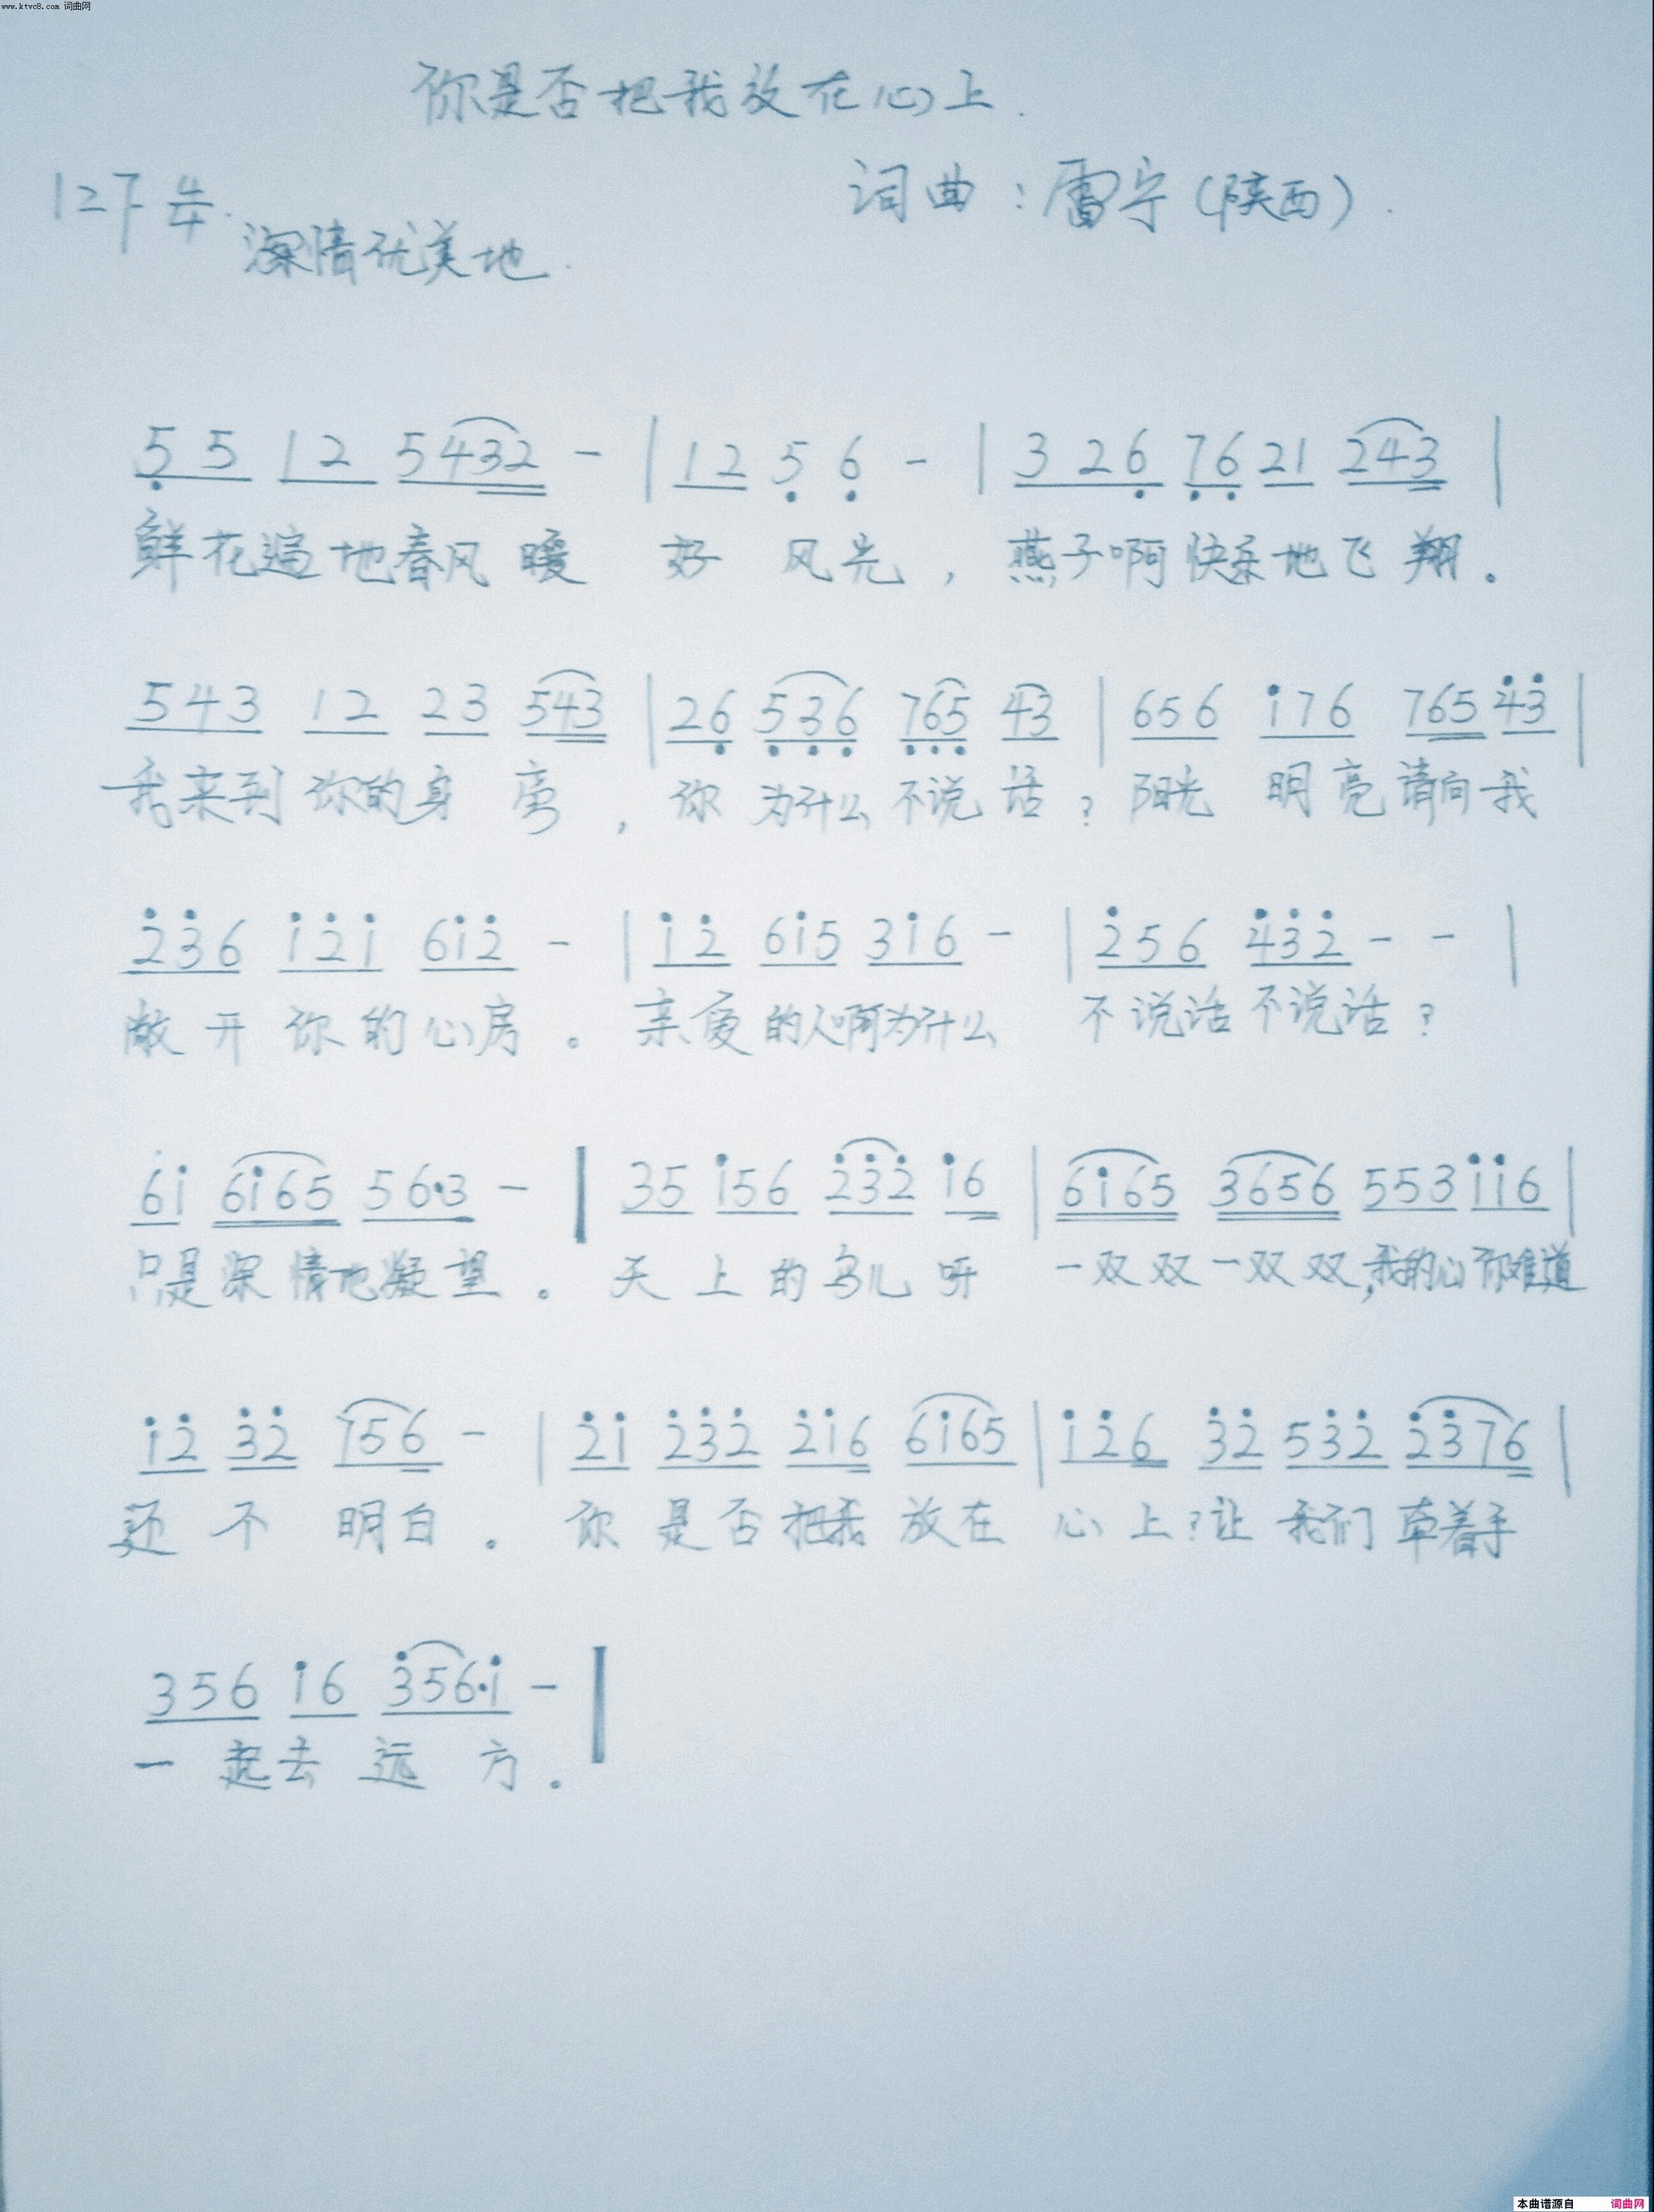 www.ktvc8.com 词曲网
你是否把我放在心上.
1=F 4/4. 词曲:雷宁(陕西).
深情优美地.
5̣ 5 1 2 5 4 3 2 - | 1 2 5̣ 6̣ - | 3 2 6̣ 7̣ 6̣ 2 1 2 4 3 |
鲜花遍地春风暖 好风光,燕子啊快乐地飞翔。
5 4 3 1 2 2 3 5 4 3 | 2 6̣ 5̣ 3̣ 6̣ 7̣ 6̣ 5̣ 4 3 | 6 5 6 1̇ 7 6 7 6 5 4̇ 3̇ |
我来到你的身旁,你为什么不说话?阳光 明亮请向我
2̇ 3̇ 6 1̇ 2̇ 1̇ 6 1̇ 2̇ - | 1̇ 2̇ 6 1̇ 5 3 1̇ 6 - | 2̇ 5 6 4̇ 3̇ 2̇ - - |
敞开你的心房。亲爱的人啊为什么 不说话不说话?
6 1̇ 6 1̇ 6 5 5 6·3 - | 3 5 1̇ 5 6 2̇ 3̇ 2̇ 1̇ 6 | 6 1̇ 6 5 3 6 5 6 5 5 3 1̇ 1̇ 6 |
只是深情地凝望。天上的鸟儿呀 一双双一双双,我的心你难道
1̇ 2̇ 3̇ 2̇ 1 5 6 - | 2̇ 1̇ 2̇ 3̇ 2̇ 2̇ 1̇ 6 6 1̇ 6 5 | 1̇ 2̇ 6 3̇ 2̇ 5 3̇ 2̇ 2̇ 3̇ 7 6 |
还不明白。你是否把我放在心上?让我们牵着手
3 5 6 1̇ 6 3̇ 5 6·1̇ - |
一起去远方。
本曲谱源自 词曲网